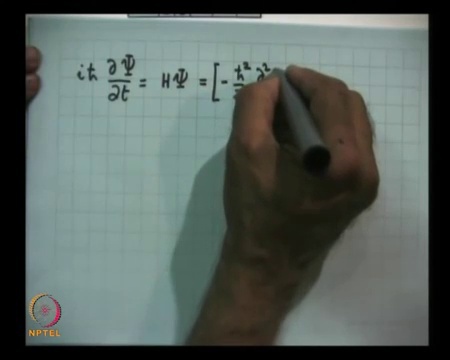 iħ ∂Ψ/∂t = HΨ = [-ħ² ∂²
NPTEL